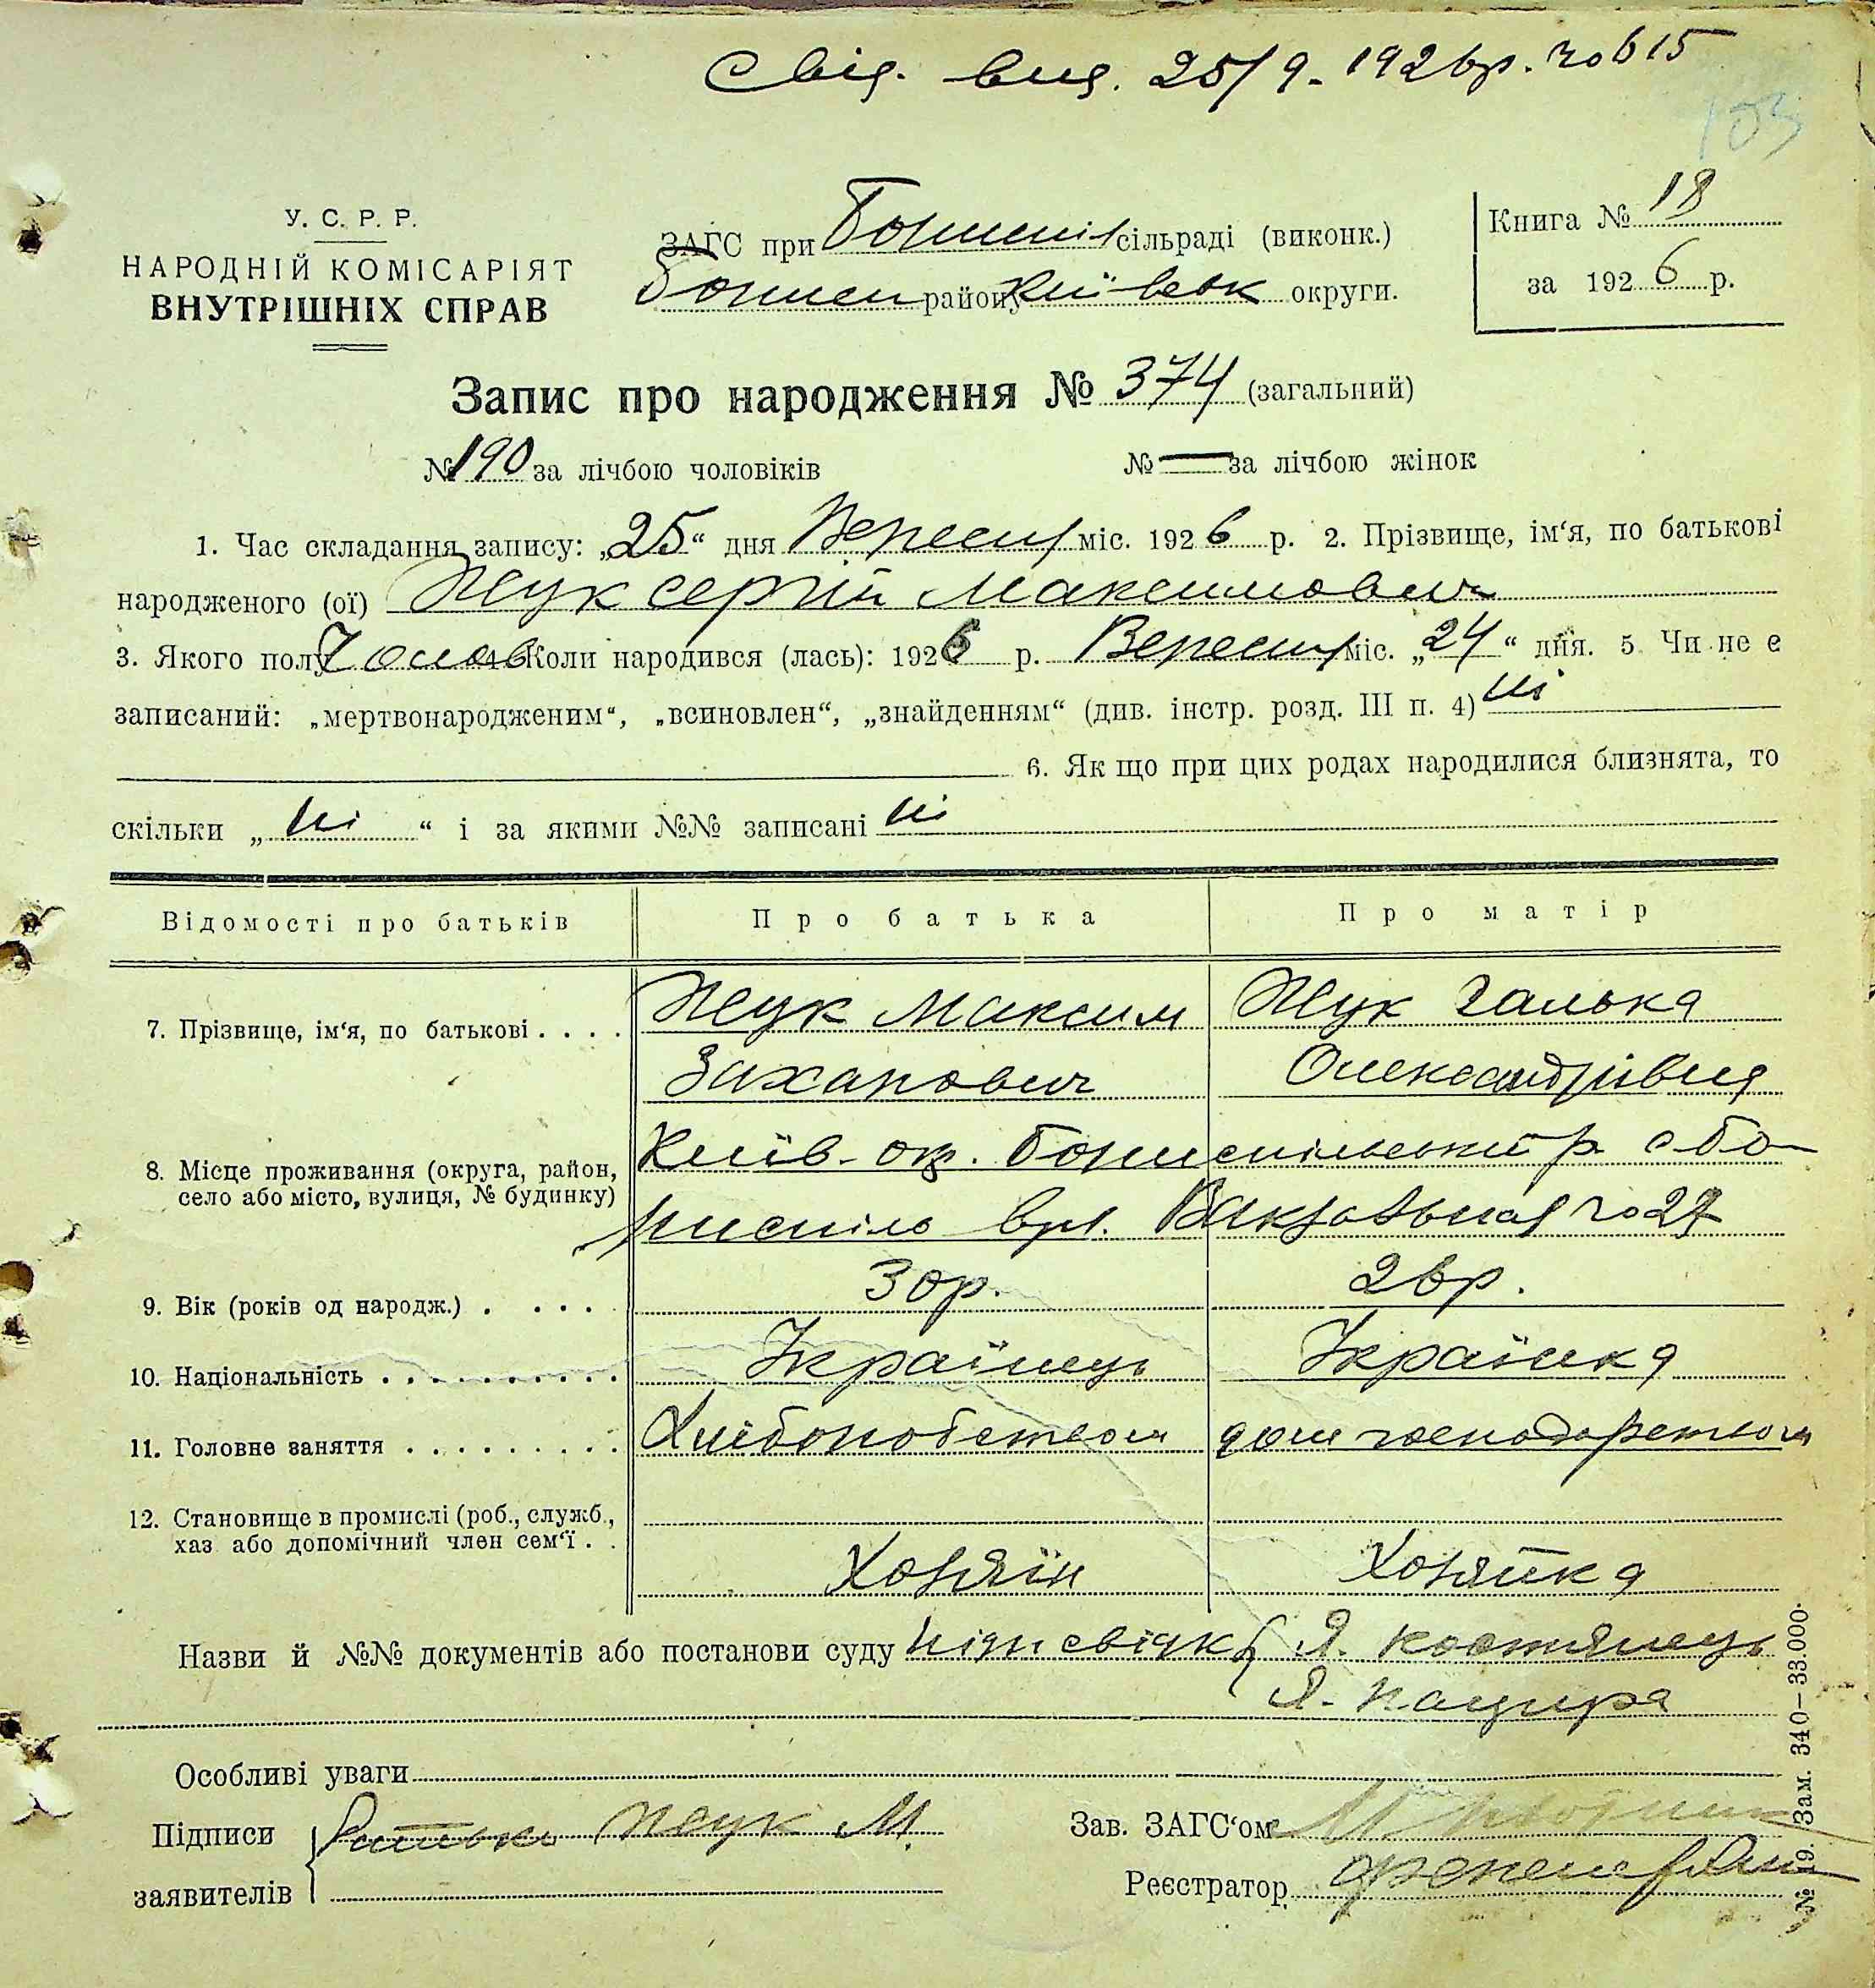 Свід. вид. 25/9- 1926р. № 615
103
У. С. Р. Р.
НАРОДНІЙ КОМІСАРІЯТ
ВНУТРІШНІХ СПРАВ
ЗАГС при Боришпіл сільраді (виконк.)
району Київськ округи.
Книга № 18
за 1926 р.
Запис про народження № 374 (загальний)
№ 190 за лічбою чоловіків № — за лічбою жінок
1. Час складання запису: „25“ дня Вересня міс. 1926 р. 2. Прізвище, ім‘я, по батькові
народженого (ої) Жук Сергій Максимович
3. Якого полу Чолов 4. Коли народився (лась): 1926 р. Вересня міс. „24“ дня. 5. Чи не є
записаний: „мертвонародженим“, „всиновлен“, „знайденням“ (див. інстр. розд. III п. 4) ні
6. Як що при цих родах народилися близнята, то
скільки „ ні “ і за якими №№ записані ні
Відомості про батьків Про батька Про матір
7. Прізвище, ім‘я, по батькові . . . . Жук Максим Жук Галька
Захарович Олександрівна
8. Місце проживання (округа, район, Київ- окр. Боришпільський р. с Бо-
село або місто, вулиця, № будинку) риспіль вул. Вакзальная № 27
9. Вік (років од народж.) . . . . 30р. 26р.
10. Національність . . . . . . . . . . Українець Українка
11. Головне заняття . . . . . . . . . Хліборобством дом господарством
12. Становище в промислі (роб., служб.,
хаз або допомічний член сем‘ї . . Хозяїн Хозяйка
Назви й №№ документів або постанови суду свідки Я. Костянець
Я. Пацюра
Особливі уваги
Підписи Батько Жук М.
заявителів
Зав. ЗАГС‘ом
Реєстратор
№ 9. Зам. 340–33.000.